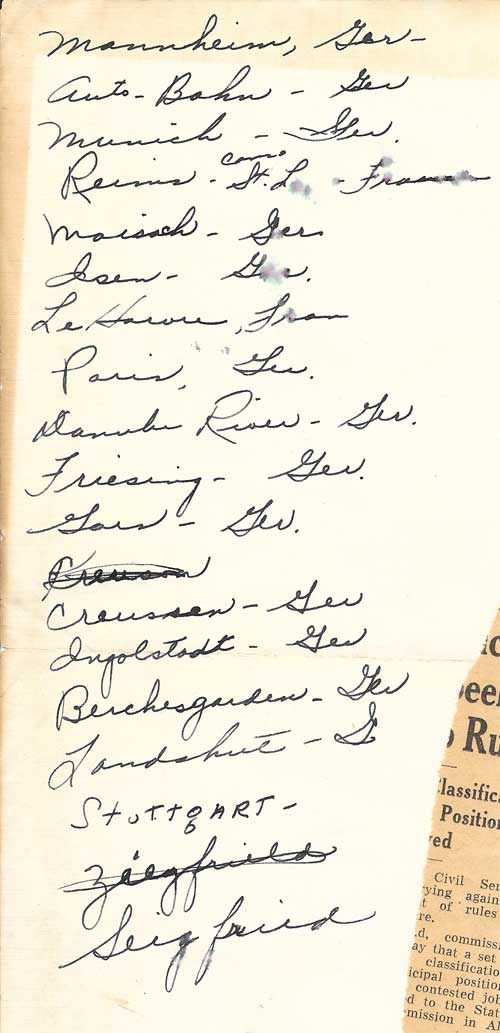 Mannheim, Ger-
Auto-Bahn - Ger
Munich - Ger.
Reims - Camp St. L - France
Moisach - Ger
Isen - Ger.
Le Havre, Fran
Paris, Ger.
Danube River - Ger.
Friesing - Ger.
Gars - Ger.
Creussen - Ger
Ingolstadt - Ger
Berchesgarden - Ger
Landshut - G
Stuttgart -
Ziegfrield
Seigfried
Ru
Classific
Position
ved
Civil Ser
ying again
t of rules
re.
d, commiss
ay that a set
classification
icipal position
contested job
d to the Stat
mission in A